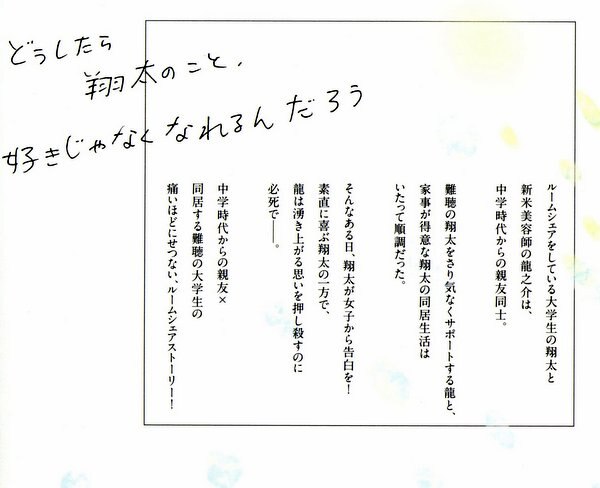 どうしたら
翔太のこと、
好きじゃなくなれるんだろう
ルームシェアをしている大学生の翔太と
新米美容師の龍之介は、
中学時代からの親友同士。
難聴の翔太をさり気なくサポートする龍と、
家事が得意な翔太の同居生活は
いたって順調だった。
そんなある日、翔太が女子から告白を!
素直に喜ぶ翔太の一方で、
龍は湧き上がる思いを押し殺すのに
必死で――。
中学時代からの親友×
同居する難聴の大学生の
痛いほどにせつない、ルームシェアストーリー!